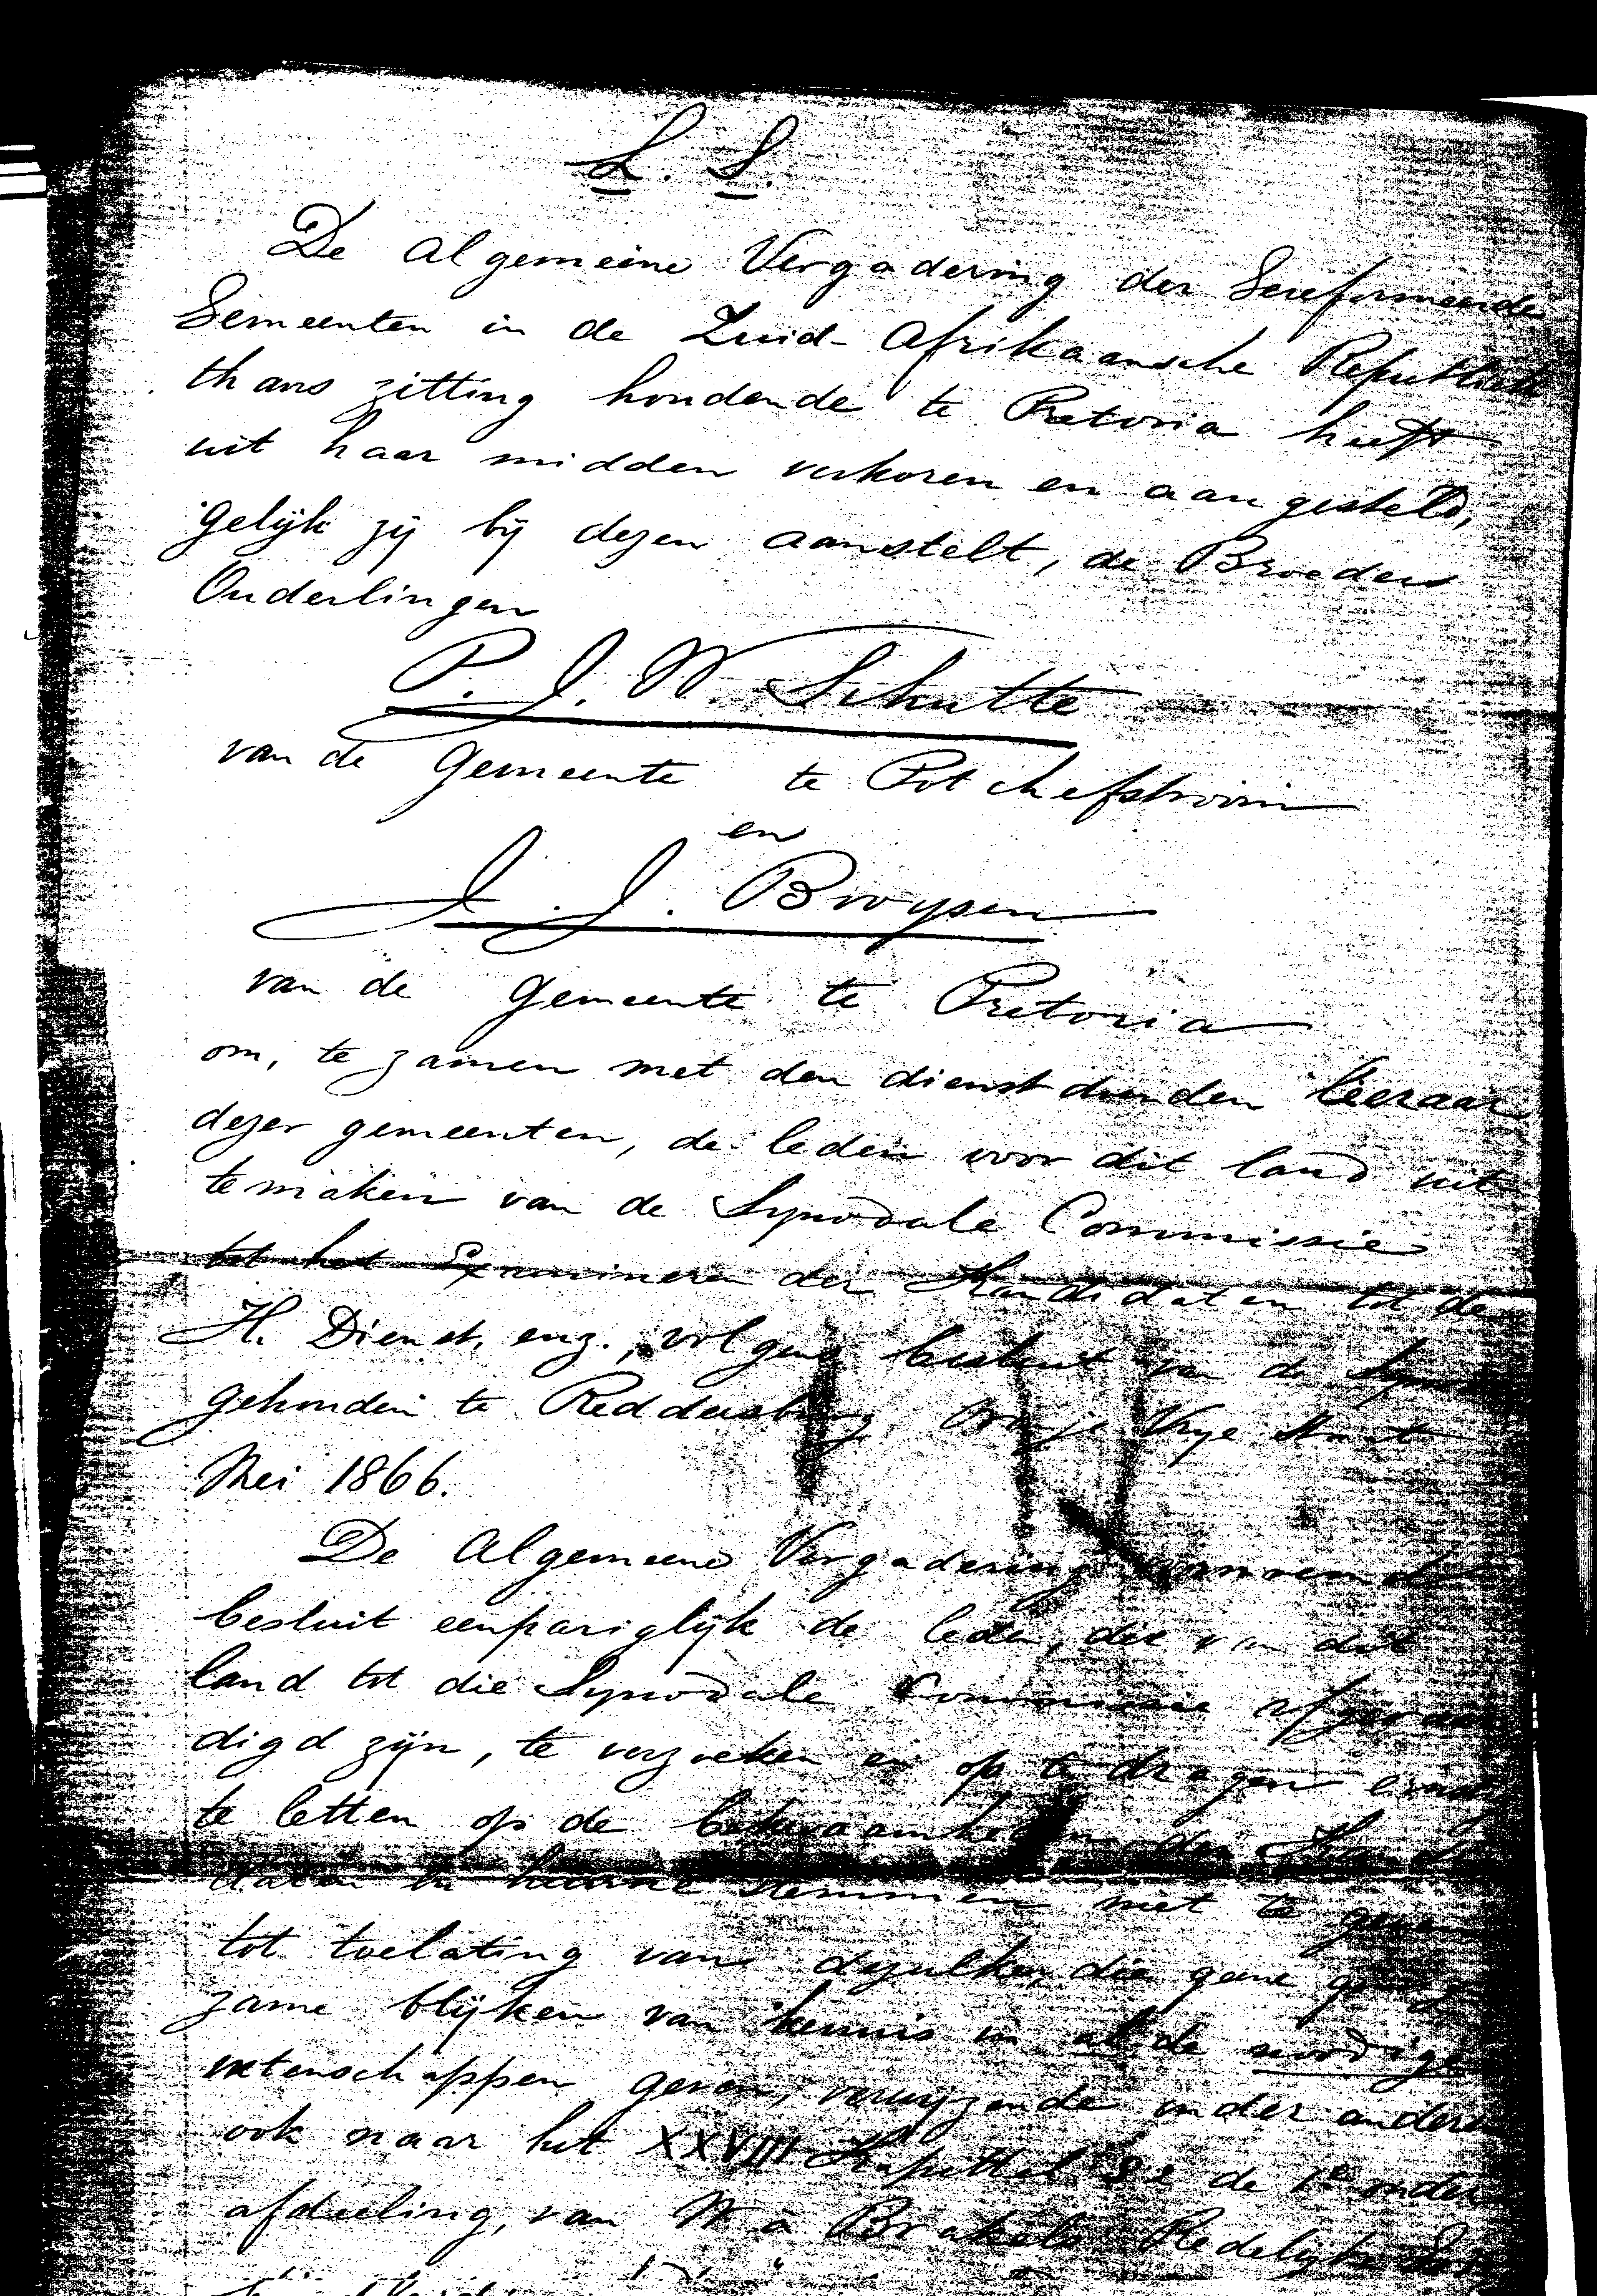 L. S.
De Algemeene Vergadering der Gereformeerde
Gemeenten in de Zuid-Afrikaansche Republiek
thans zitting houdende te Pretoria heeft
uit haar midden verkoren en aangesteld,
gelijk zij bij dezen aanstelt, de Broeders
Ouderlingen
P. J. W. Schutte
van de Gemeente te Potchefstroom
en
J. J. Bruysen
van de Gemeente te Pretoria
om, te zamen met den dienstdoenden leeraar
dezer gemeenten, de leden voor dit land uit
te maken van de Synodale Commissie
tot het Examineren der Kandidaten tot de
H. Dienst, enz., volgens besluit van de Synode
gehouden te Reddersburg Oranje Vrye Staat
Mei 1866.
De Algemeene Vergadering
besluit eenpariglijk de leden, die van dit
land tot die Synodale Commissie afgevaar
digd zijn, te verzoeken en op te dragen ernstig
te letten op de bekwaamheden der Kandi
daten en hunne stemmen niet te geven
tot toelating van dezulken, die geene genoeg
zame blijken van kennis in al de noodige
wetenschappen geven, verwyzende onder andere
ook naar het XXVIII Kapittel de 1e onder
afdeeling, van W a Brakels Redelijke